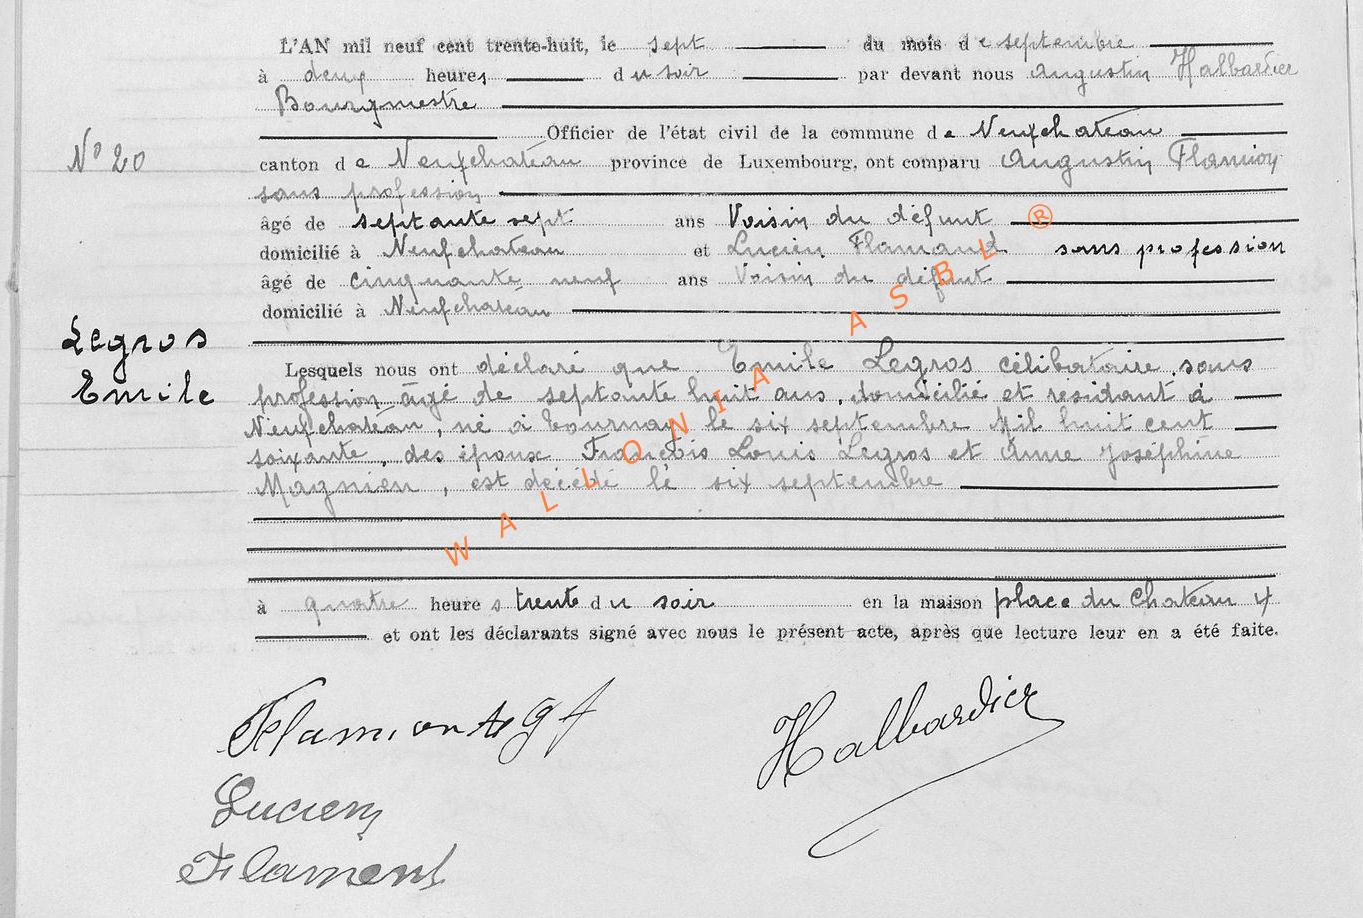 L'AN mil neuf cent trente-huit, le sept du mois de septembre
à deux heures du soir par devant nous Augustin Halbardier
Bourgmestre
Officier de l'état civil de la commune de Neufchateau
N° 20
canton de Neufchateau province de Luxembourg, ont comparu Augustin Flamion
sans profession
âgé de septante sept ans Voisin du défunt
domicilié à Neufchateau et Lucien Flamand sans profession
âgé de cinquante neuf ans Voisin du défunt
domicilié à Neufchateau
Legros
Emile
Lesquels nous ont déclaré que Emile Legros célibataire, sans
profession âgé de septante huit ans, domicilié et résidant à
Neufchateau, né à Tournay le six septembre Mil huit cent
soixante, des époux François Louis Legros et Anne Joséphine
Magnien, est décédé le six septembre
à quatre heures trente du soir en la maison place du Chateau 4
et ont les déclarants signé avec nous le présent acte, après que lecture leur en a été faite.
Halbardier
Lucien
Flament
WALLONIA ASBL ®